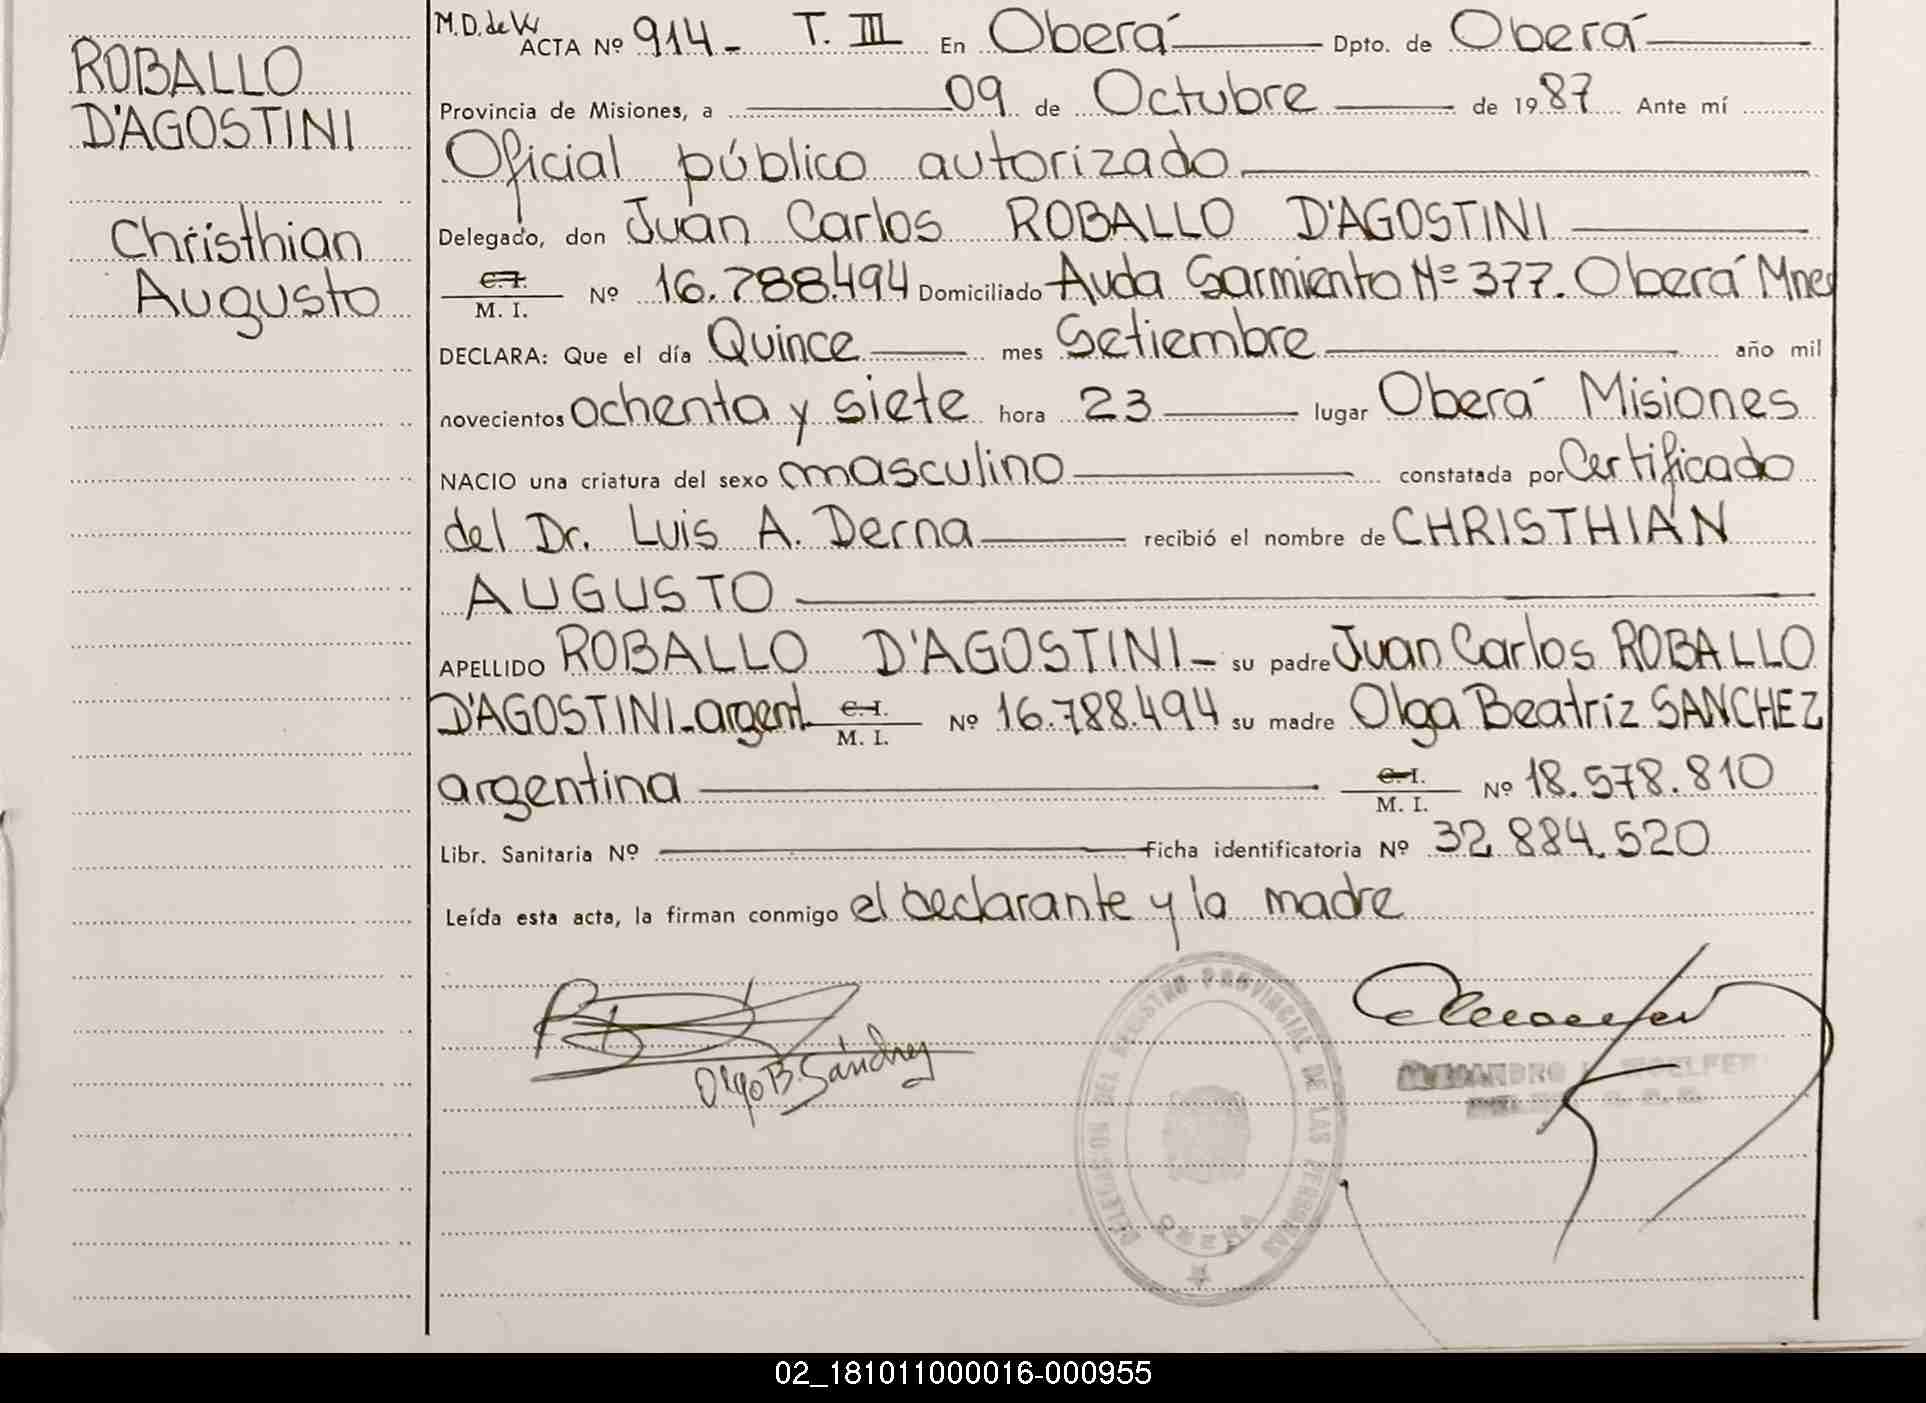 ROBALLO
D'AGOSTINI
Christhian
Augusto
M.D. de W
ACTA Nº 914 - T. III En Oberá Dpto. de Oberá
Provincia de Misiones, a 09 de Octubre de 1987 Ante mí
Oficial público autorizado
Delegado, don Juan Carlos ROBALLO D'AGOSTINI
C.I.
M. I. Nº 16.788.494 Domiciliado Avda Sarmiento Nº 377. Oberá Mnes
DECLARA: Que el día Quince mes Setiembre año mil
novecientos ochenta y siete hora 23 lugar Oberá Misiones
NACIO una criatura del sexo masculino constatada por Certificado
del Dr. Luis A. Derna recibió el nombre de CHRISTHIAN
AUGUSTO
APELLIDO ROBALLO D'AGOSTINI - su padre Juan Carlos ROBALLO
D'AGOSTINI - argent. C.I. M. I. Nº 16.788.494 su madre Olga Beatriz SANCHEZ
argentina C.I. M. I. Nº 18.578.810
Libr. Sanitaria Nº Ficha identificatoria Nº 32.884.520
Leída esta acta, la firman conmigo el declarante y la madre
Olga B. Sánchez
DELEGACION DEL REGISTRO PROVINCIAL DE LAS PERSONAS
OBERA
02_181011000016-000955